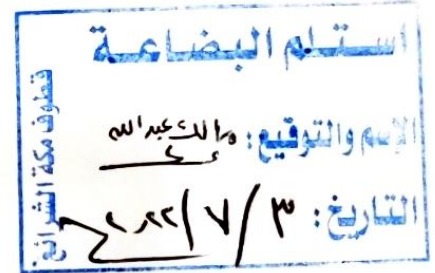 استلام البضاعة
الإسم والتوقيع: مالك عبدالله
التاريخ: ٣ / ٧ / ٢٠٢٢
قطوف مكة الشرائع